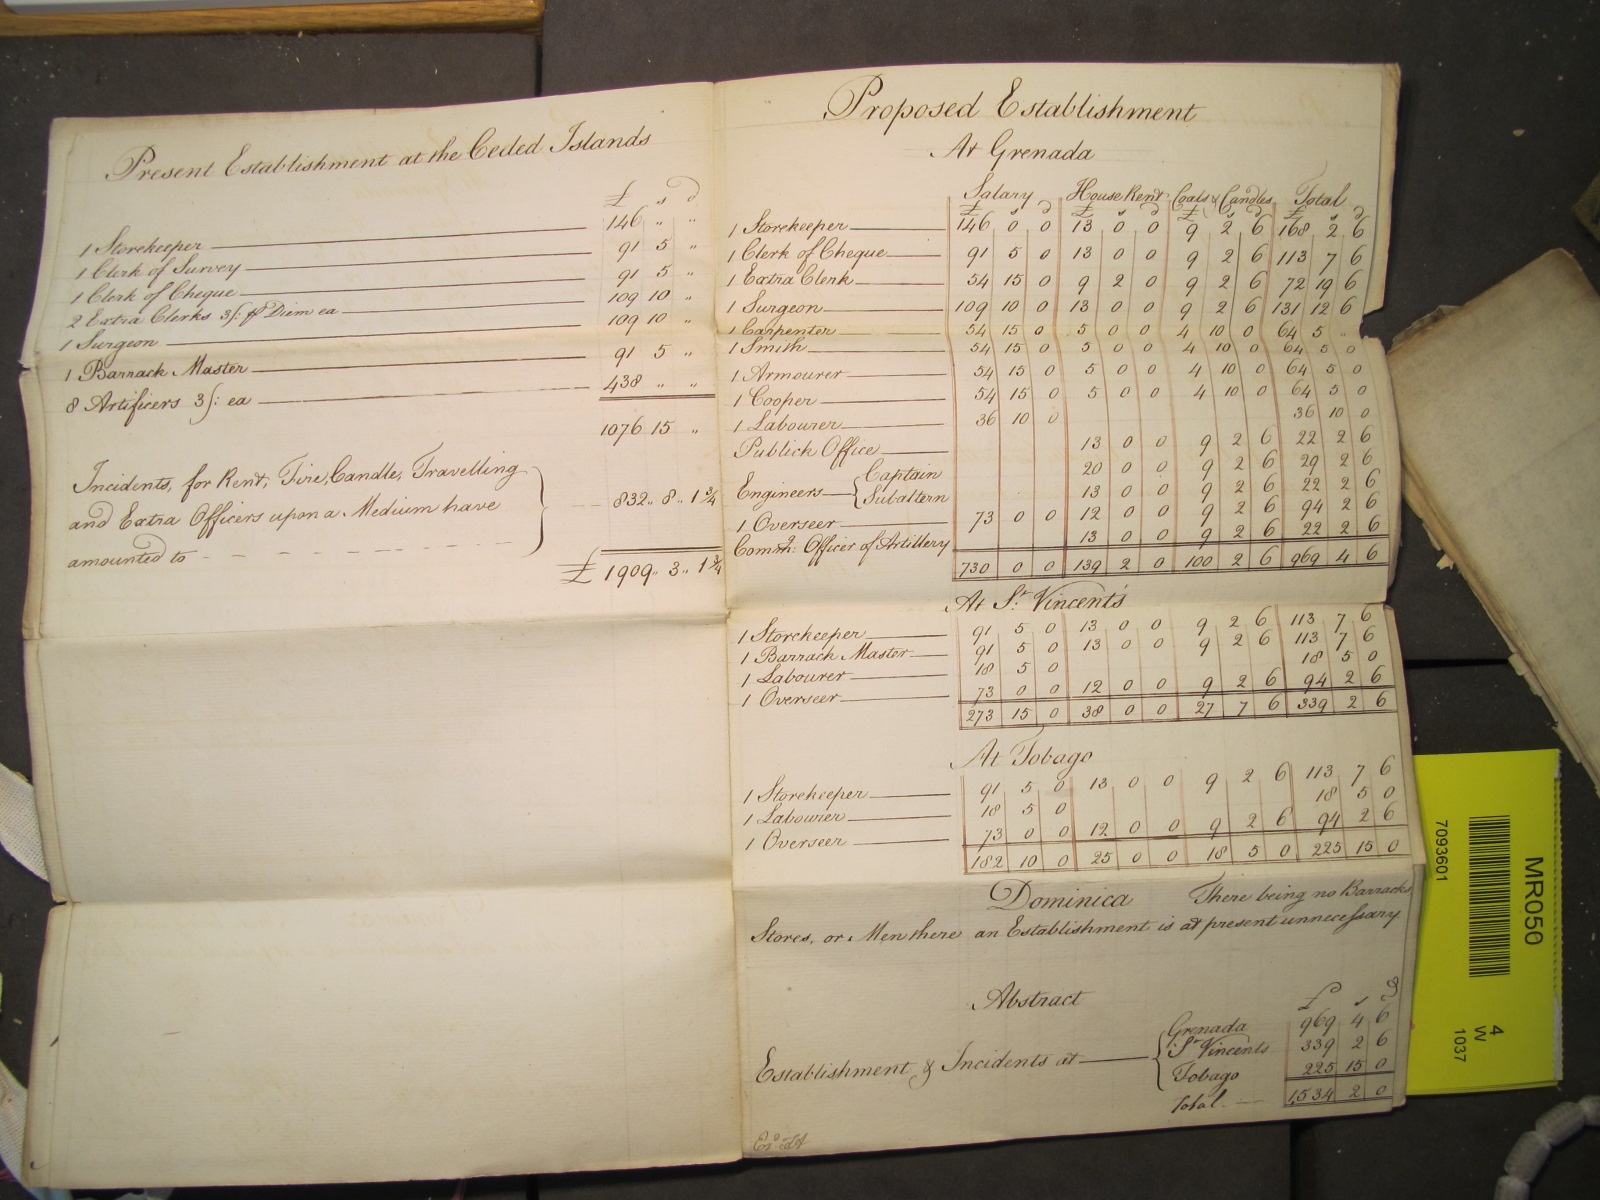 Present Establishment at the Ceded Islands
£ s d
1 Storekeeper 146 " "
1 Clerk of Survey 91 5 "
1 Clerk of Cheque 91 5 "
2 Extra Clerks 3/: p Diem ea 109 10 "
1 Surgeon 109 10 "
1 Barrack Master 91 5 "
8 Artificers 3/: ea 438 " "
1076 15 "
Incidents, for Rent, Fire, Candle, Travelling
and Extra Officers upon a Medium have
amounted to 832 .. 8 .. 1 3/4
£ 1909 .. 3 .. 1 3/4
Proposed Establishment
At Grenada
Salary House Rent Coals & Candles Total
£ s d £ s d £ s d £ s d
1 Storekeeper 146 0 0 13 0 0 9 2 6 168 2 6
1 Clerk of Cheque 91 5 0 13 0 0 9 2 6 113 7 6
1 Extra Clerk 54 15 0 9 2 0 9 2 6 72 19 6
1 Surgeon 109 10 0 13 0 0 9 2 6 131 12 6
1 Carpenter 54 15 0 5 0 0 4 10 0 64 5 ..
1 Smith 54 15 0 5 0 0 4 10 0 64 5 0
1 Armourer 54 15 0 5 0 0 4 10 0 64 5 0
1 Cooper 54 15 0 5 0 0 4 10 0 64 5 0
1 Labourer 36 10 0 36 10 0
Publick Office 13 0 0 9 2 6 22 2 6
Engineers { Captain 20 0 0 9 2 6 29 2 6
Subaltern 13 0 0 9 2 6 22 2 6
1 Overseer 73 0 0 12 0 0 9 2 6 94 2 6
Comm: Officer of Artillery 13 0 0 9 2 6 22 2 6
730 0 0 139 2 0 100 2 6 969 4 6
At St. Vincent's
1 Storekeeper 91 5 0 13 0 0 9 2 6 113 7 6
1 Barrack Master 91 5 0 13 0 0 9 2 6 113 7 6
1 Labourer 18 5 0 18 5 0
1 Overseer 73 0 0 12 0 0 9 2 6 94 2 6
273 15 0 38 0 0 27 7 6 339 2 6
At Tobago
1 Storekeeper 91 5 0 13 0 0 9 2 6 113 7 6
1 Labourer 18 5 0 18 5 0
1 Overseer 73 0 0 12 0 0 9 2 6 94 2 6
182 10 0 25 0 0 18 5 0 225 15 0
Dominica There being no Barracks
Stores, or Men there an Establishment is at present unnecessary
Abstract
£ s d
Establishment & Incidents at { Grenada 969 4 6
St Vincents 339 2 6
Tobago 225 15 0
Total 1534 2 0
MR050
7093601
4
W
1037